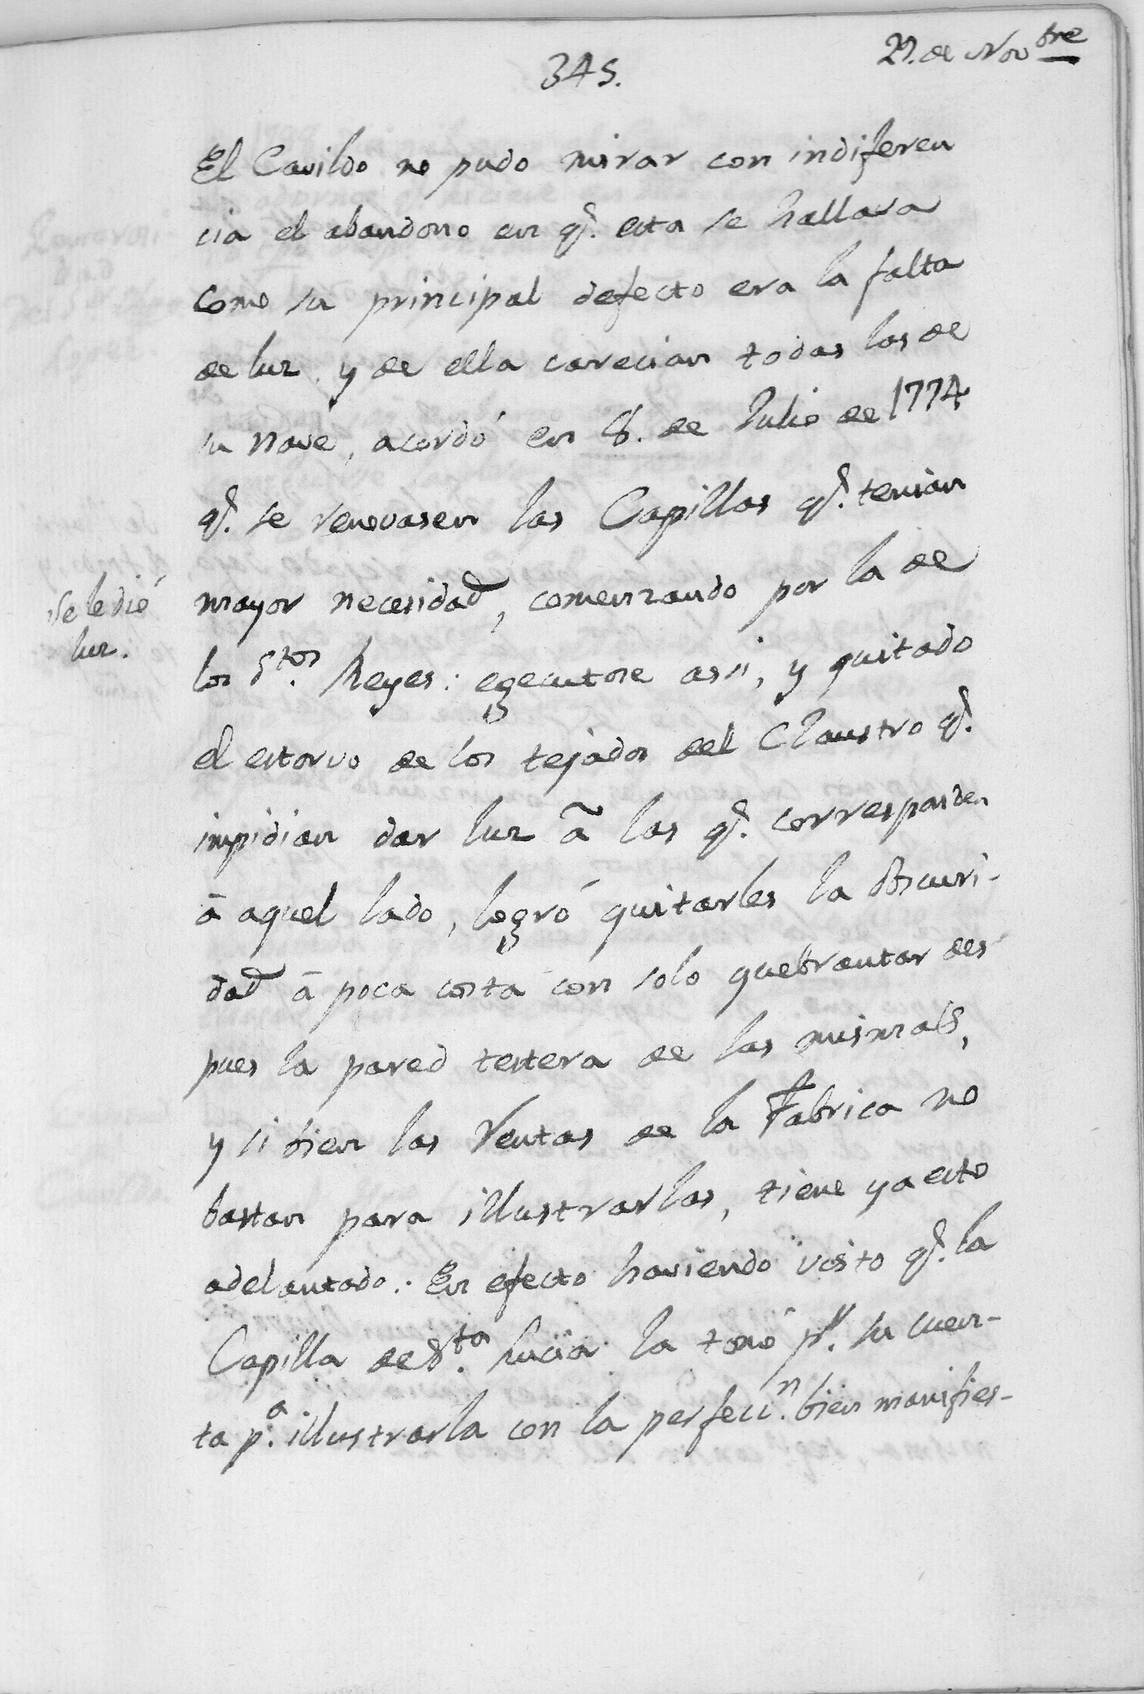 345.
27. de Nov^bre
El Cavildo no pudo mirar con indiferen
cia el abandono en q.^e esta se hallava
como su principal defecto era la falta
de luz y de ella carecian todas las de
su nave, acordó en 8. de Julio de 1774
q.^e se renovasen las Capillas q.^e tenian
mayor necesidad, comenzando por la de
los S.^tos Reyes: egecutose asi, y quitado
el estorvo de los tejados del Claustro q.^e
impidian dar luz â las q.^e corresponden
â aquel lado, logró quitarles la obscuri-
dad â poca costa con solo quebrantar des
pues la pared testera de las mismas,
y si bien las Rentas de la Fabrica no
bastan para illustrarlas, tiene ya esto
adelantado: En efecto haviendo visto q.^e la
Capilla de S.^ta Lucia la tomó p.^r su cuen-
ta p.^a illustrarla con la perfecc.^n bien manifies-
Se le dió
luz.